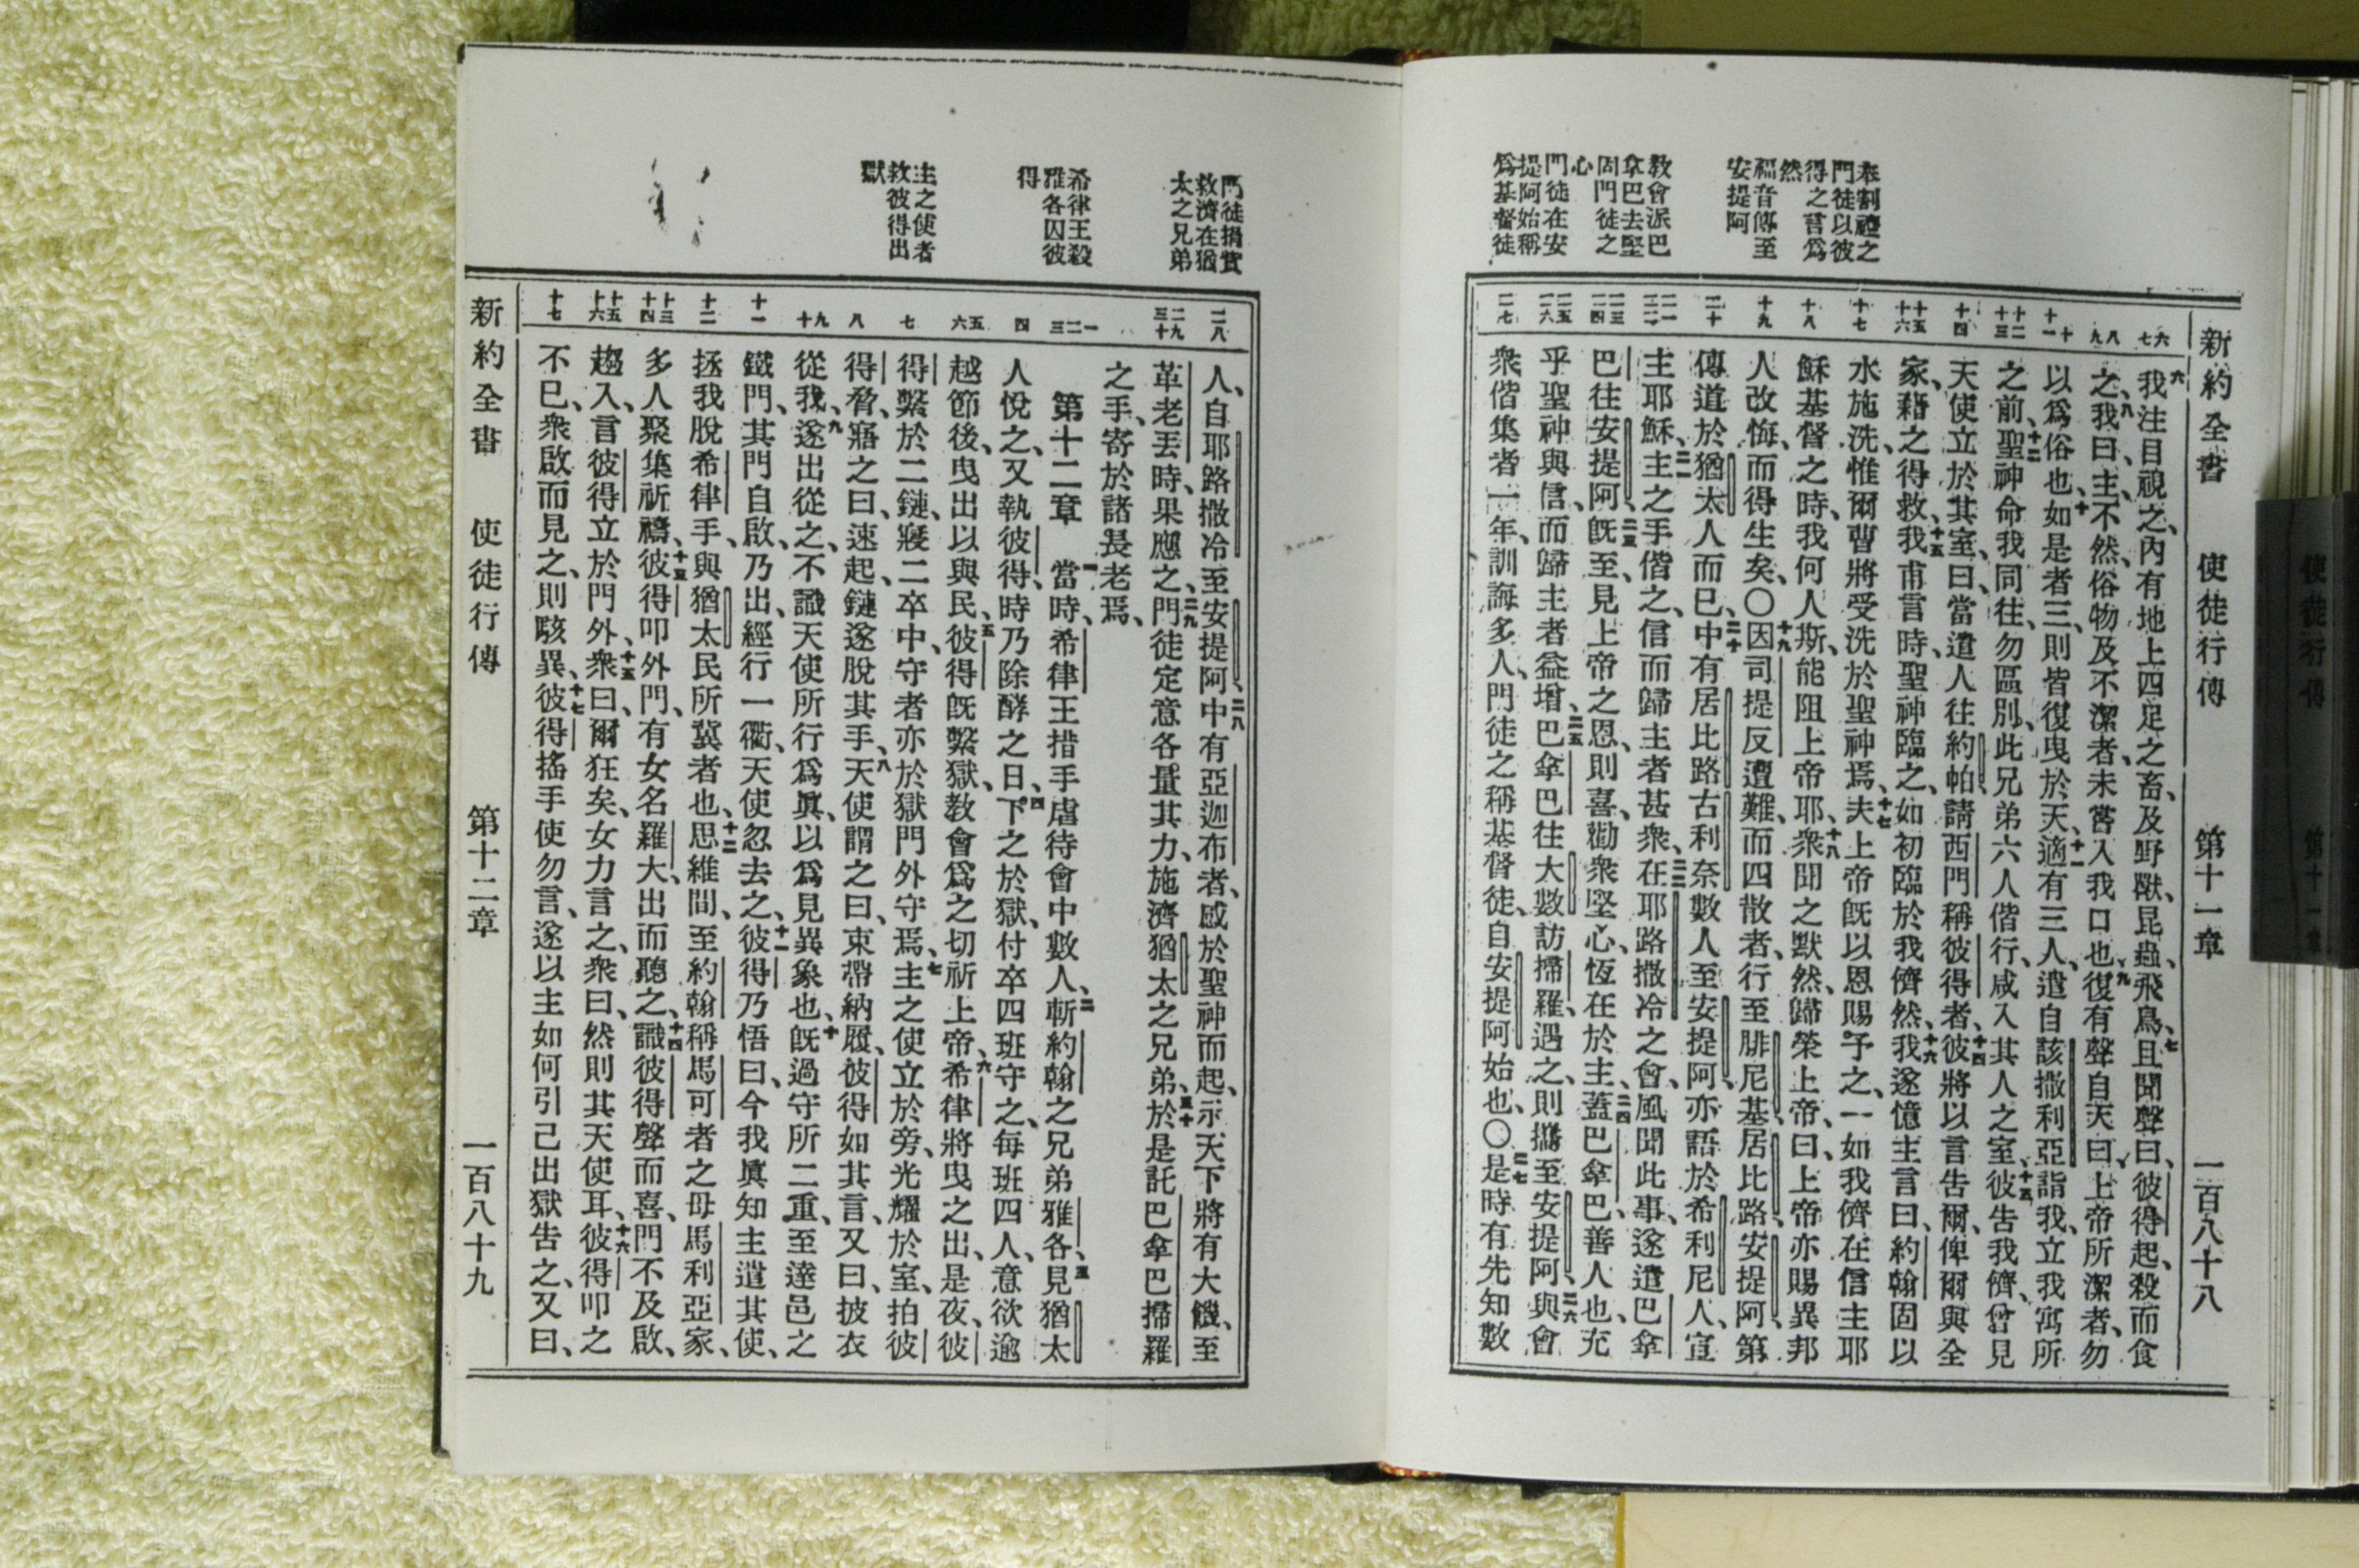 新約全書 使徒行傳 第十一章 一百八十八
奉割禮之
門徒以彼
得之言爲
然
福音傳至
安提阿
教會派巴
拿巴去堅
固門徒之
心
門徒在安
提阿始稱
爲基督徒
六七
八九
十十一
十二十三
十四
十五十六
十七
十八
十九
二十
二一二二
二三二四
二五二六
二七
六我注目視之、內有地上四足之畜、及野獸、昆蟲、飛鳥、七且聞聲曰、彼得起、殺而食
之、八我曰、主、不然、俗物及不潔者、未嘗入我口也、九復有聲自天曰、上帝所潔者、勿
以爲俗也、十如是者三、則皆復曳於天、十一適有三人、遣自該撒利亞詣我、立我寓所
之前、十二聖神命我同往、勿區別、此兄弟六人偕行、咸入其人之室、十三彼告我儕、曾見
天使立於其室、曰、當遣人往約帕、請西門稱彼得者、十四彼將以言告爾、俾爾與全
家、藉之得救、十五我甫言時、聖神臨之、如初臨於我儕然、十六我遂憶主言曰、約翰固以
水施洗、惟爾曹將受洗於聖神焉、十七夫上帝旣以恩賜予之、一如我儕在信主耶
穌基督之時、我何人斯、能阻上帝耶、十八衆聞之默然、歸榮上帝、曰、上帝亦賜異邦
人改悔、而得生矣、〇十九因司提反遭難、而四散者、行至腓尼基、居比路、安提阿、第
傳道於猶太人而已、二十中有居比路古利奈數人、至安提阿、亦語於希利尼人、宣
主耶穌、二一主之手偕之、信而歸主者甚衆、二二在耶路撒冷之會、風聞此事、遂遣巴拿
巴往安提阿、二三旣至、見上帝之恩、則喜、勸衆堅心、恆在於主、二四蓋巴拿巴、善人也、充
乎聖神與信、而歸主者益增、二五巴拿巴往大數訪掃羅、遇之、則攜至安提阿、二六與會
衆偕集者一年、訓誨多人、門徒之稱基督徒、自安提阿始也、〇二七是時有先知數
門徒捐貲
救濟在猶
太之兄弟
希律王殺
雅各囚彼
得
主之使者
救彼得出
獄
二八
二九三十
一二三
四
五六
七
八
九十
十一
十二
十三十四
十五十六
十七
人、自耶路撒冷至安提阿、二八中有亞迦布者、感於聖神而起、示天下將有大饑、至
革老丟時、果應之、二九門徒定意各量其力、施濟猶太之兄弟、三十於是託巴拿巴掃羅
之手、寄於諸長老焉、
第十二章 一當時、希律王措手虐待會中數人、二斬約翰之兄弟雅各、三見猶太
人悅之、又執彼得、時乃除酵之日、四下之於獄、付卒四班守之、每班四人、意欲逾
越節後、曳出以與民、五彼得旣繫獄、教會爲之切祈上帝、六希律將曳之出、是夜、彼
得繫於二鏈、寢二卒中、守者亦於獄門外守焉、七主之使立於旁、光耀於室、拍彼
得脅、寤之曰、速起、鏈遂脫其手、八天使謂之曰、束帶納履、彼得如其言、又曰、披衣
從我、九遂出從之、不識天使所行爲眞、以爲見異象也、十旣過守所二重、至達邑之
鐵門、其門自啟、乃出、經行一衢、天使忽去之、十一彼得乃悟曰、今我眞知主遣其使、
拯我脫希律手、與猶太民所冀者也、十二思維間、至約翰稱馬可者之母馬利亞家、
多人聚集祈禱、十三彼得叩外門、有女名羅大、出而聽之、十四識彼得聲而喜、門不及啟、
趨入、言彼得立於門外、十五衆曰、爾狂矣、女力言之、衆曰、然則其天使耳、十六彼得叩之
不已、衆啟而見之、則駭異、十七彼得搖手使勿言、遂以主如何引己出獄告之、又曰、
新約全書 使徒行傳 第十二章 一百八十九